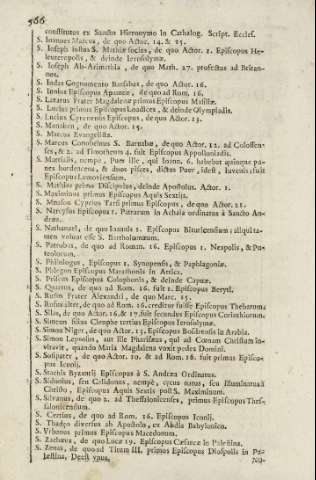 566
constitutus ex Sancto Hieronymo in Cathalog. Script. Eccles.
S. Ioannes Marcus, de quo Actor. 14. & 25.
S. Ioseph iustus S. Mathiæ socius, de quo Actor. 1. Episcopus He-
leuteropolis, & deinde Ierosolymæ.
S. Ioseph Ab-Arimathia, de quo Math. 27. profectus ad Britan-
nos.
S. Iudas Cognomento Barsabas, de quo Actor. 16.
S. Iunius Episcopus Apameæ, de quo ad Rom. 16.
S. Lazarus Frater Magdalenæ primus Episcopus Massiliæ.
S. Lucius primus Episcopus Laodices, & deinde Olympiadis.
S. Lucius Cyrenensis Episcopus, de quo Actor. 13.
S. Manahen, de quo Actor. 15.
S. Marcus Evangelista.
S. Marcus Consobrinus S. Barnabæ, de quo Actor. 12. ad Colossen-
ses, & 2. ad Timotheum 4. fuit Episcopus Appolloniadis.
S. Martialis, nempe, Puer ille, qui Ioann. 6. habebat quinque pa-
nes hordeaceos, & duos pisces, dictus Puer, idest, Iuvenis; fuit
Episcopus Lemovicensium.
S. Mathias primus Discipulus, deinde Apostolus. Actor. 1.
S. Maximinus primus Episcopus Aquis Sextijs.
S. Mnason Cyprius Tarsi primus Episcopus, de quo Actor. 21.
S. Narcyssus Episcopus 1. Patrarum in Achaia ordinatus à Sancto An-
drea.
S. Nathanael, de quo Ioannis 1. Episcopus Bituricensium; aliqui ta-
men volunt esse S. Bartholomæum.
S. Patrobas, de quo ad Roman. 16. Episcopus 1. Neapolis, & Pu-
teolorum.
S. Philologus, Episcopus 1. Synopensis, & Paphlagoniæ.
S. Phlegon Episcopus Marathonis in Attica.
S. Priscus Episcopus Colophonis, & deinde Capuæ.
S. Quartus, de quo ad Rom. 16. fuit 1. Episcopus Beryti.
S. Rufus Frater Alexandri, de quo Marc. 15.
S. Rufus alter, de quo ad Rom. 16. creditur fuisse Episcopus Thebarum.
S. Silas, de quo Actor. 16. & 17. fuit secundus Episcopus Corinthiorum.
S. Simeon filius Cleophæ tertius Episcopus Ierosolymæ.
S. Simon Niger, de quo Actor. 13. Episcopus Bosthensis in Arabia.
S. Simon Leprosus, aut ille Phariseus, qui ad Cœnam Christum in-
vitavit, quando Maria Magdalena vnxit pedes Domini.
S. Sosipater, de quo Actor. 20. & ad Rom. 16. fuit primus Episco-
pus Iconij.
S. Stachis Byzantij Episcopus à S. Andrea Ordinatus.
S. Sidonius, seu Celidonus, nempè, cæcus natus, seu Illuminatus à
Christo, Episcopus Aquis Sextis post S. Maximinum.
S. Silvanus, de quo 2. ad Thessalonicenses, primus Episcopus Thes-
salonicensium.
S. Tertius, de quo ad Rom. 16. Episcopus Iconij.
S. Thadeo diversus ab Apostolo, ex Abdia Babylonico.
S. Vrbanus primus Episcopus Macedonum.
S. Zachæus, de quo Lucæ 19. Episcopus Cæsareæ in Palestina.
S. Zenas, de quo ad Titum III. primus Episcopus Diospolis in Pa-
lestina, Deest vnus.
No-